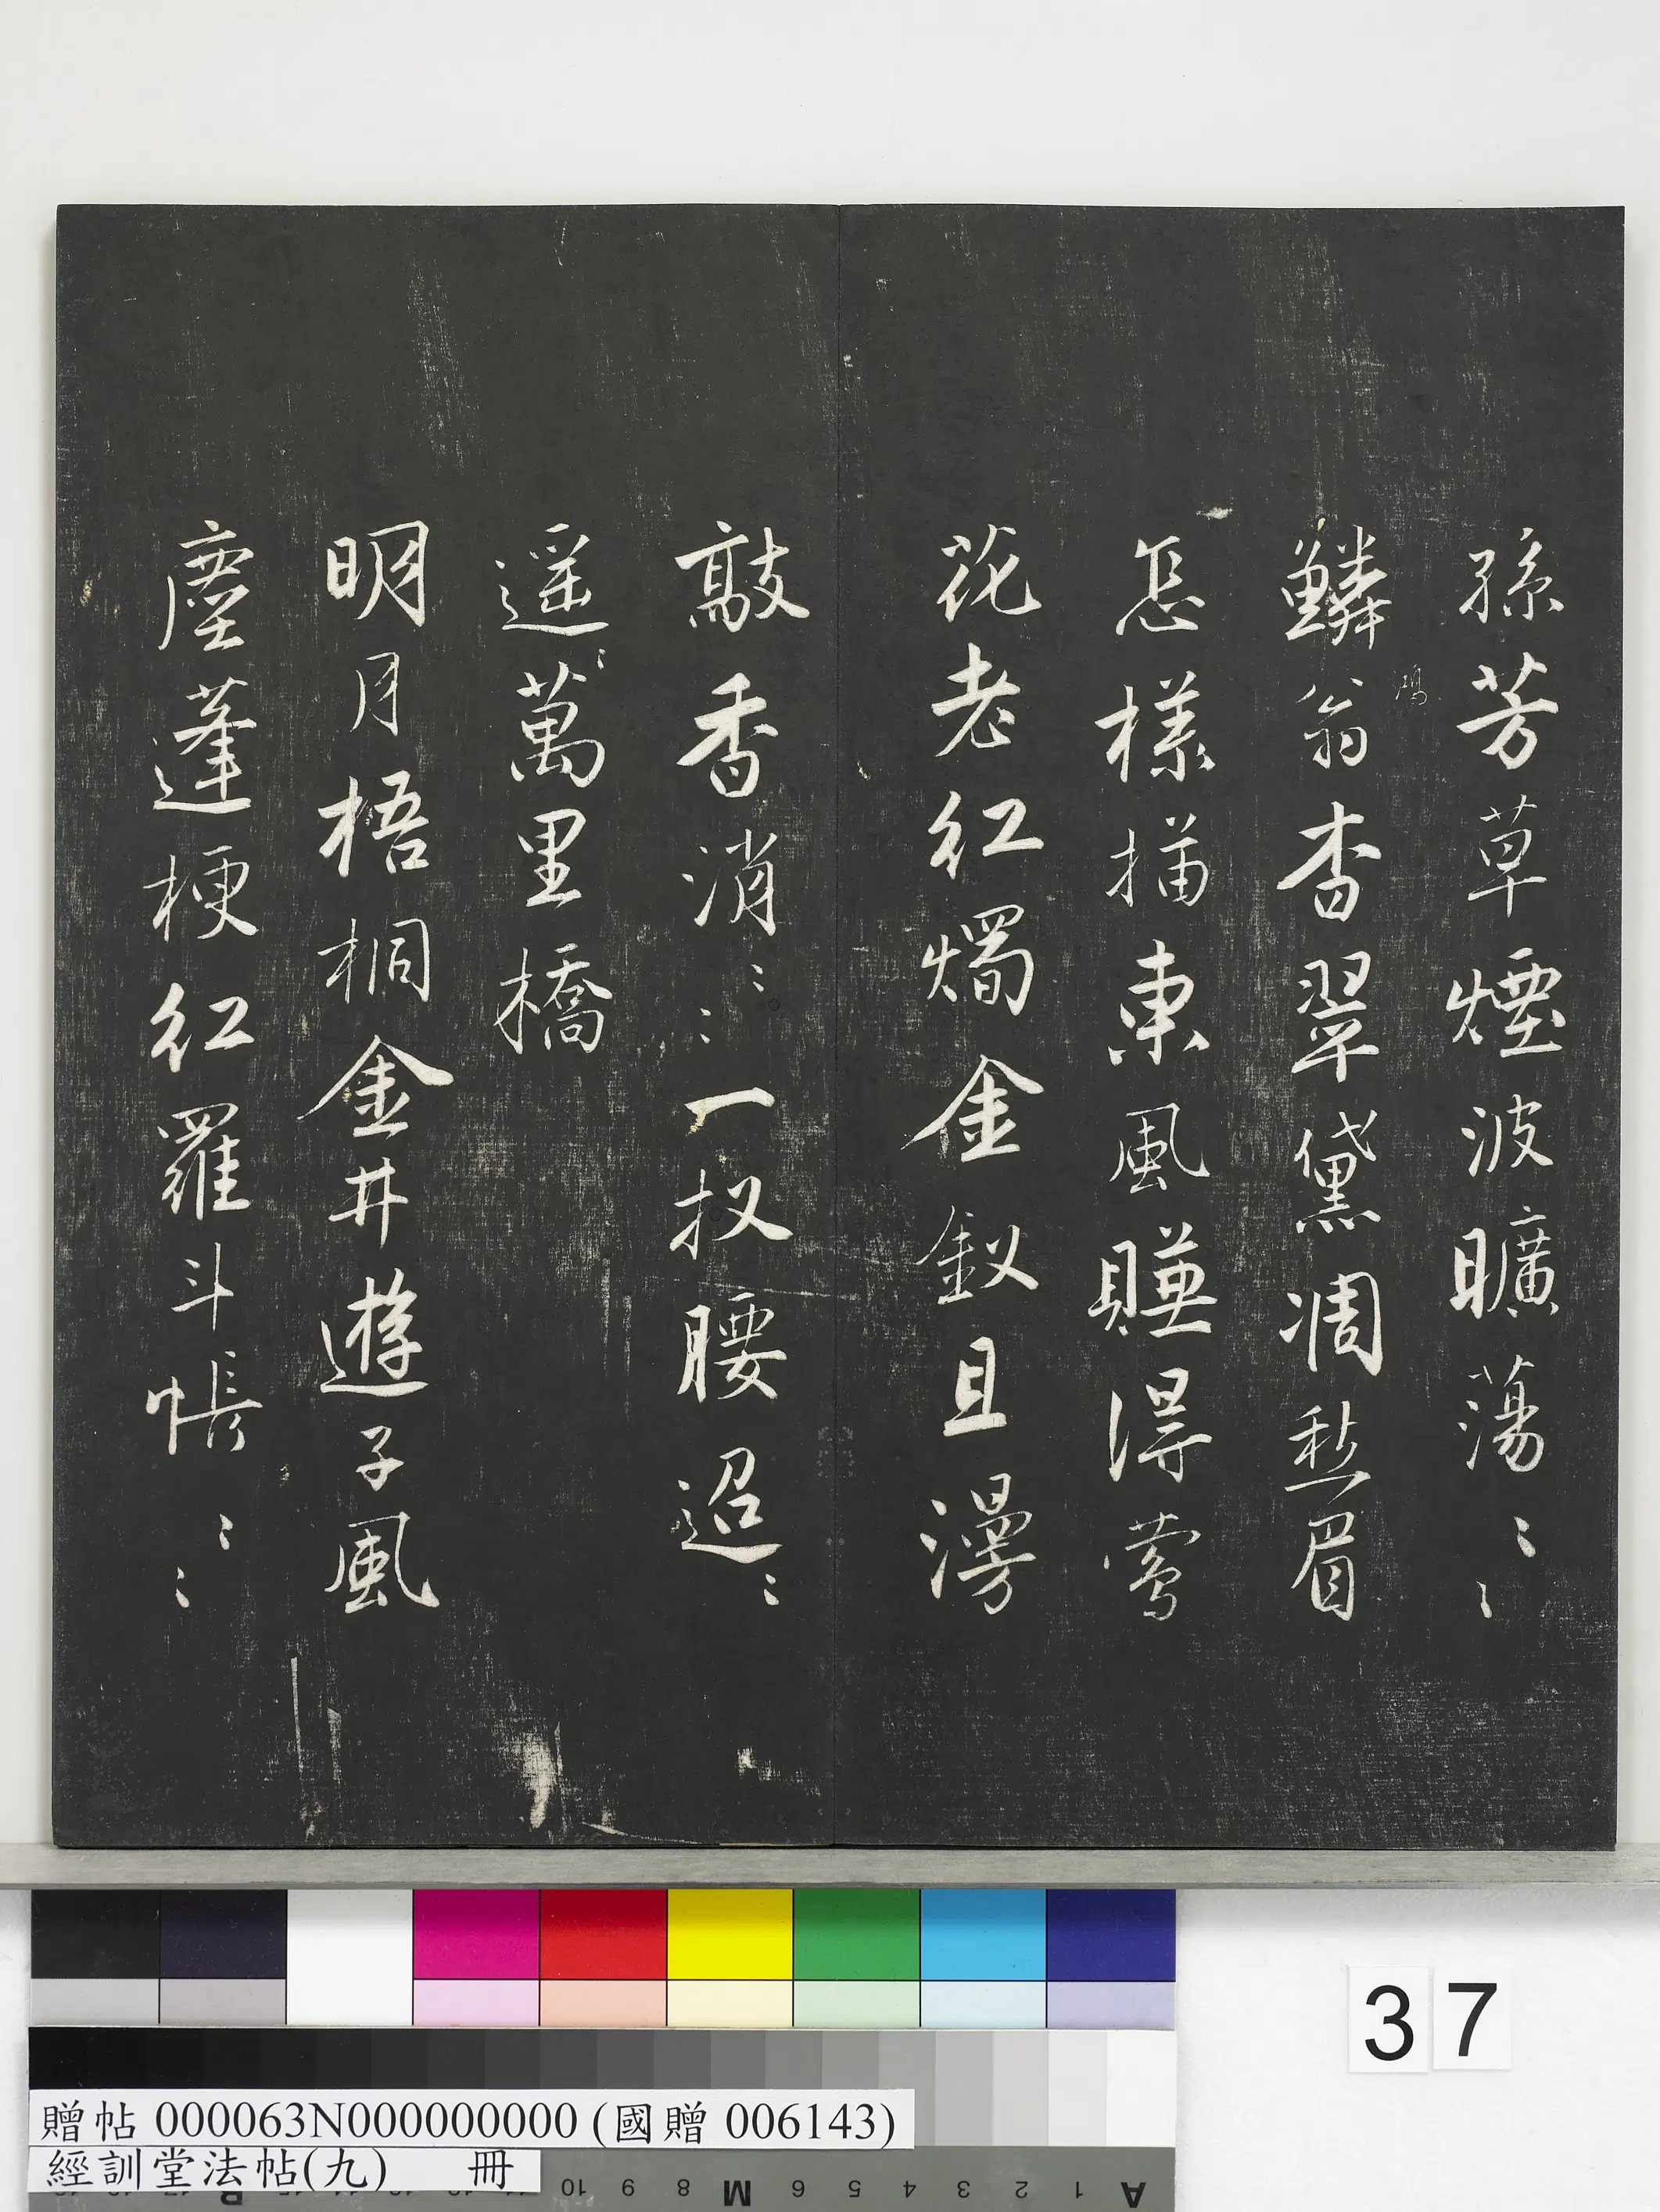 孫芳草煙波曠蕩〻〻
鱗翁杳翠黛凋愁眉
怎樣描東風賺得鶯
花老紅燭金釵且漫
敲香消〻〻一扠腰迢〻
遥〻萬里橋
明月梧桐金井遊子風
塵蓬梗紅羅斗帳〻〻
37
贈帖 000063N000000000 (國贈 006143)
經訓堂法帖(九) 冊
A 1 2 3 4 5 6 M 8 9 10